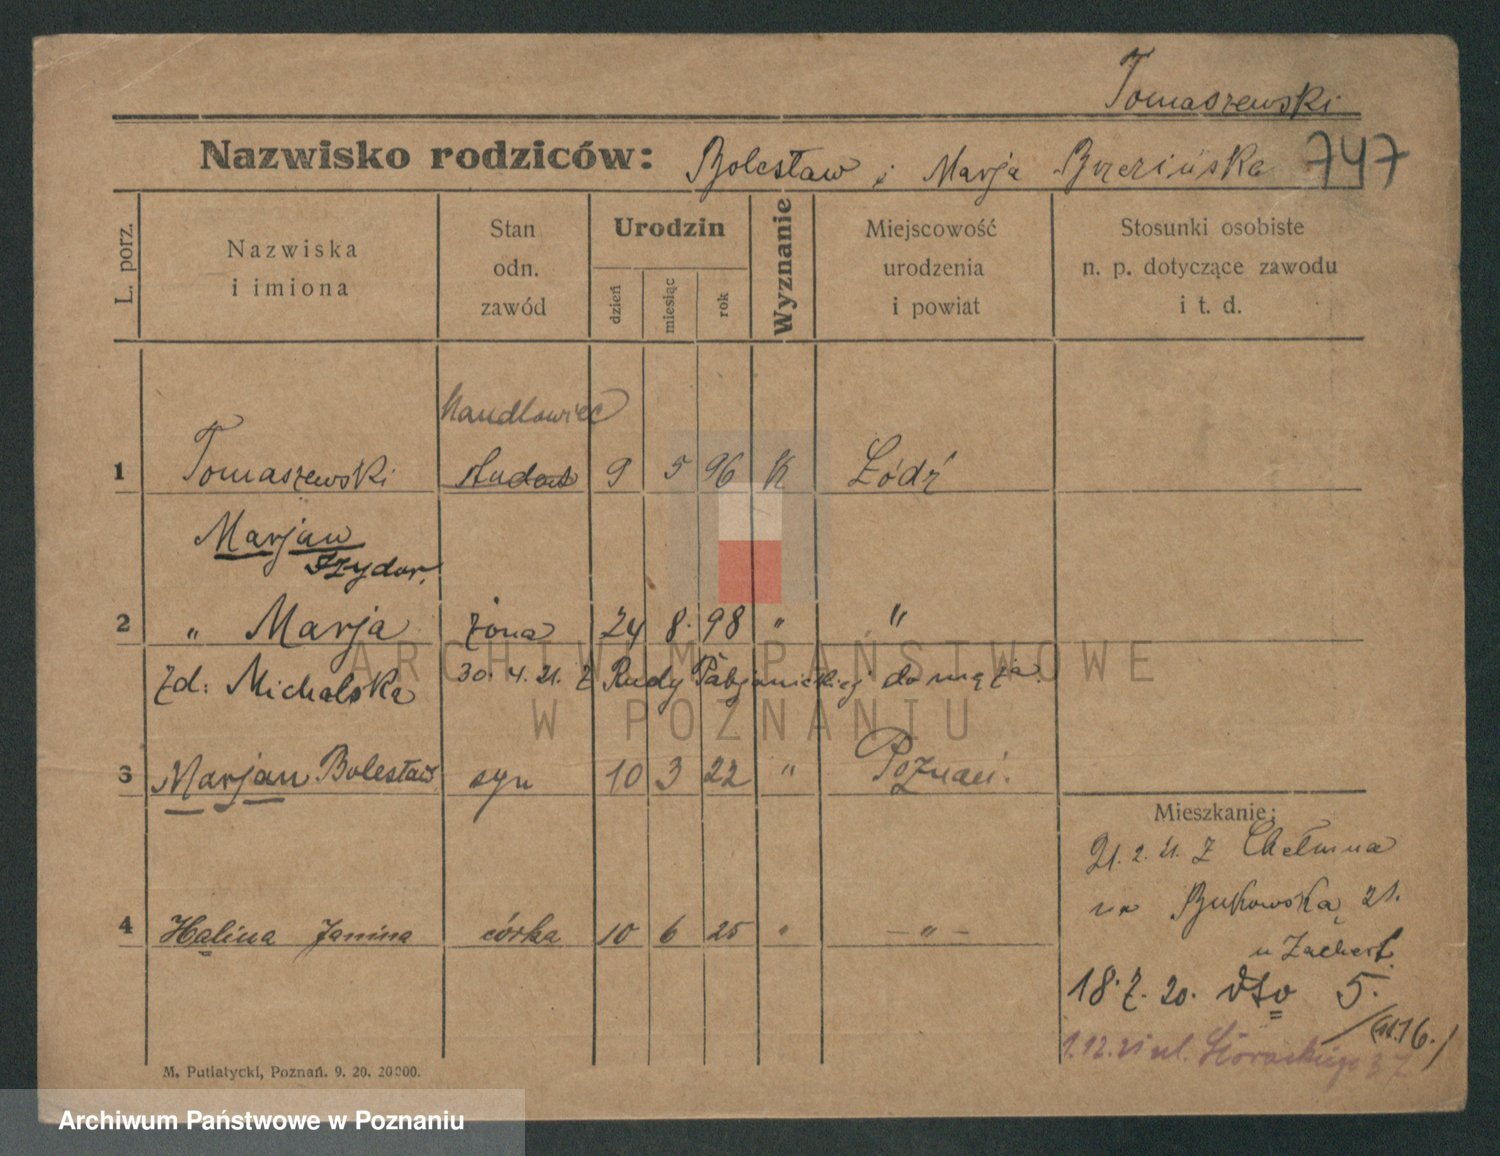 Tomaszewski
Nazwisko rodziców: Bolesław i Marja Brzezińska 747
L. porz.
Nazwiska
i imiona
Stan
odn.
zawód
Urodzin
dzień
miesiąc
rok
Wyznanie
Miejscowość
urodzenia
i powiat
Stosunki osobiste
n. p. dotyczące zawodu
i t. d.
Handlowiec
1 Tomaszewski student 9 5 96 K Łódź
Marjan
Izydor.
2 " Marja żona 24 8. 98 " "
zd: Michalska 30. 4. 21. z Rudy Pabjanickiej do męża.
3 Marjan Bolesław syn 10 3 22 " Poznań.
Mieszkanie:
21. 2. 21. z Chełmna
na Bukowską 21.
u Zachert.
4 Halina Janina córka 10 6 25 " – " –
18. 7. 20. 5.
1.12. ul.
M. Putiatycki, Poznań. 9. 20. 20000.
ARCHIWUM PAŃSTWOWE
W POZNANIU
Archiwum Państwowe w Poznaniu